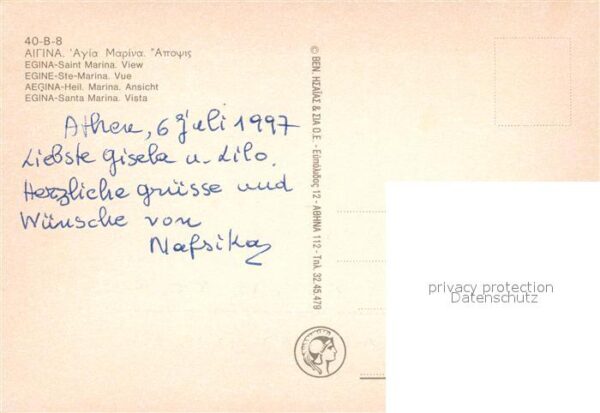 40-B-8
ΑΙΓΙΝΑ. Ἁγία Μαρίνα. Ἄποψις
EGINA-Saint Marina. View
EGINE-Ste-Marina. Vue
AEGINA-Heil. Marina. Ansicht
EGINA-Santa Marina. Vista
Athen, 6 Juli 1997
Liebste Gisela u. Lilo.
Herzliche grüsse und
Wünsche von
Nafsika
© ΒΕΝ. ΗΣΑΪΑΣ & ΣΙΑ Ο.Ε. - Εὐπόλιδος 12 - ΑΘΗΝΑ 112 - Τηλ. 32.45.479
privacy protection
Datenschutz